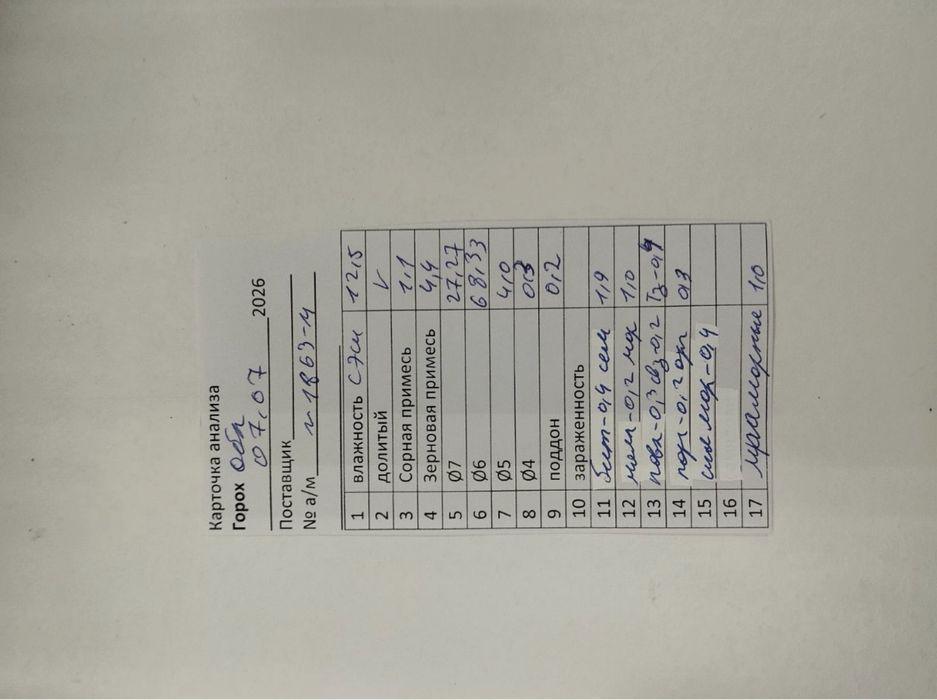 Карточка анализа
Горох обл
07.07 2026
Поставщик
№ а/м м 1863-4
1 влажность сэш 12,5
2 долитый V
3 Сорная примесь 1,1
4 Зерновая примесь 4,4
5 Ø7 27,27
6 Ø6 68,33
7 Ø5 4,0
8 Ø4 0,3
9 поддон 0,2
10 зараженность
11 бит-0,4 сем 1,9
12 -0,2 1,0
13 повр-0,3 -0,2 -0,4
14 -0,2 0,3
15 -0,4
16
17 мраморные 1,0